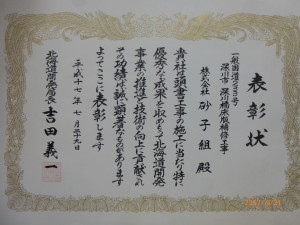 表彰状
一般国道233号
深川市 深川橋床版補修工事
株式会社 砂子組 殿
貴社は頭書工事の施工に当たり特に
優秀な成果を収めもって北海道開発
事業の推進と技術の向上に貢献され
その功績は誠に顕著なものがあります
よってここに表彰します
平成十七年七月二十九日
北海道開発局長 吉田義一